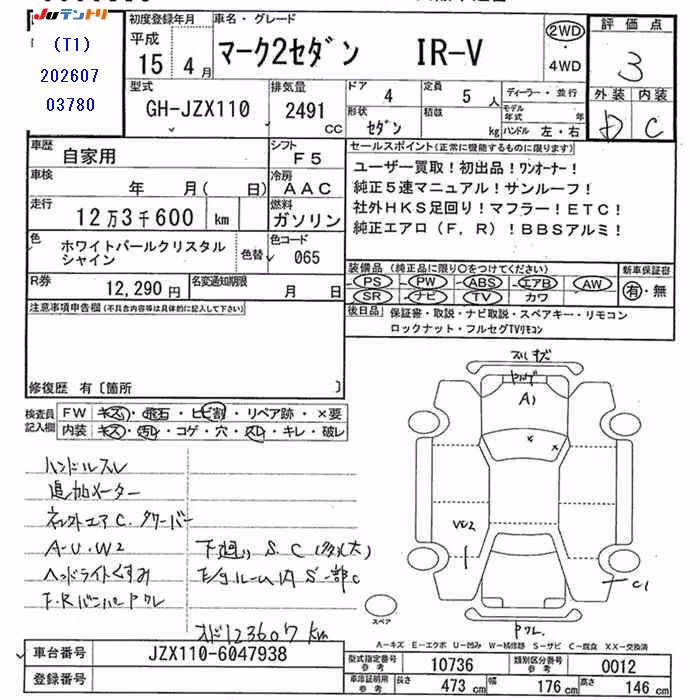 JUテントリ
(T1)
202607
03780
初度登録年月
平成
15年4月
車名・グレード
マーク2セダン IR-V
2WD
・
4WD
評価点
3
型式
GH-JZX110
排気量
2491
CC
ドア 4
定員 5人
形状 セダン
積載 kg
ディーラー・並行
モデル年式 年式
ハンドル 左・右
外装 内装
D C
車歴
自家用
シフト
F5
車検
年 月( 日)
冷房
AAC
走行
12万3千600 km
燃料
ガソリン
色
ホワイトパールクリスタル
シャイン
色替
色コード
065
R券
12,290円
名変通知期限
月 日
セールスポイント(正常に機能するものに限ります)
ユーザー買取!初出品!ワンオーナー!
純正5速マニュアル!サンルーフ!
社外HKS足回り!マフラー!ETC!
純正エアロ(F,R)!BBSアルミ!
装備品(純正品に限り○をつけてください)
PS・PW・ABS・エアB・AW
SR・ナビ・TV・カワ
新車保証書
有・無
後日品
保証書・取説・ナビ取説・スペアキー・リモコン
ロックナット・フルセグTVリモコン
注意事項申告欄(不具合内容等は具体的に記入して下さい)
修復歴 有〔箇所 〕
検査員
記入欄
FW キズ・飛石・ヒビ割・リペア跡・×要
内装 キズ・汚レ・コゲ・穴・スレ・キレ・破レ
ハンドルスレ
追加メーター
社外エアC.タワーバー
A-U.W2
ヘッドライトくすみ
F.RバンパーPクレ
下廻りS.C( 大)
E/gルーム内S一部C
オド123607km
スレキズ
A1
W2
C1
Pクレ
スペア
A-キズ E-エクボ U-凹み W-補修跡 S-サビ C-腐食 XX-交換済
車台番号
JZX110-6047938
登録番号
型式指定番号
参考
10736
類別区分番号
参考
0012
車庫証明用
参考
長さ 473cm
幅 176cm
高さ 146cm